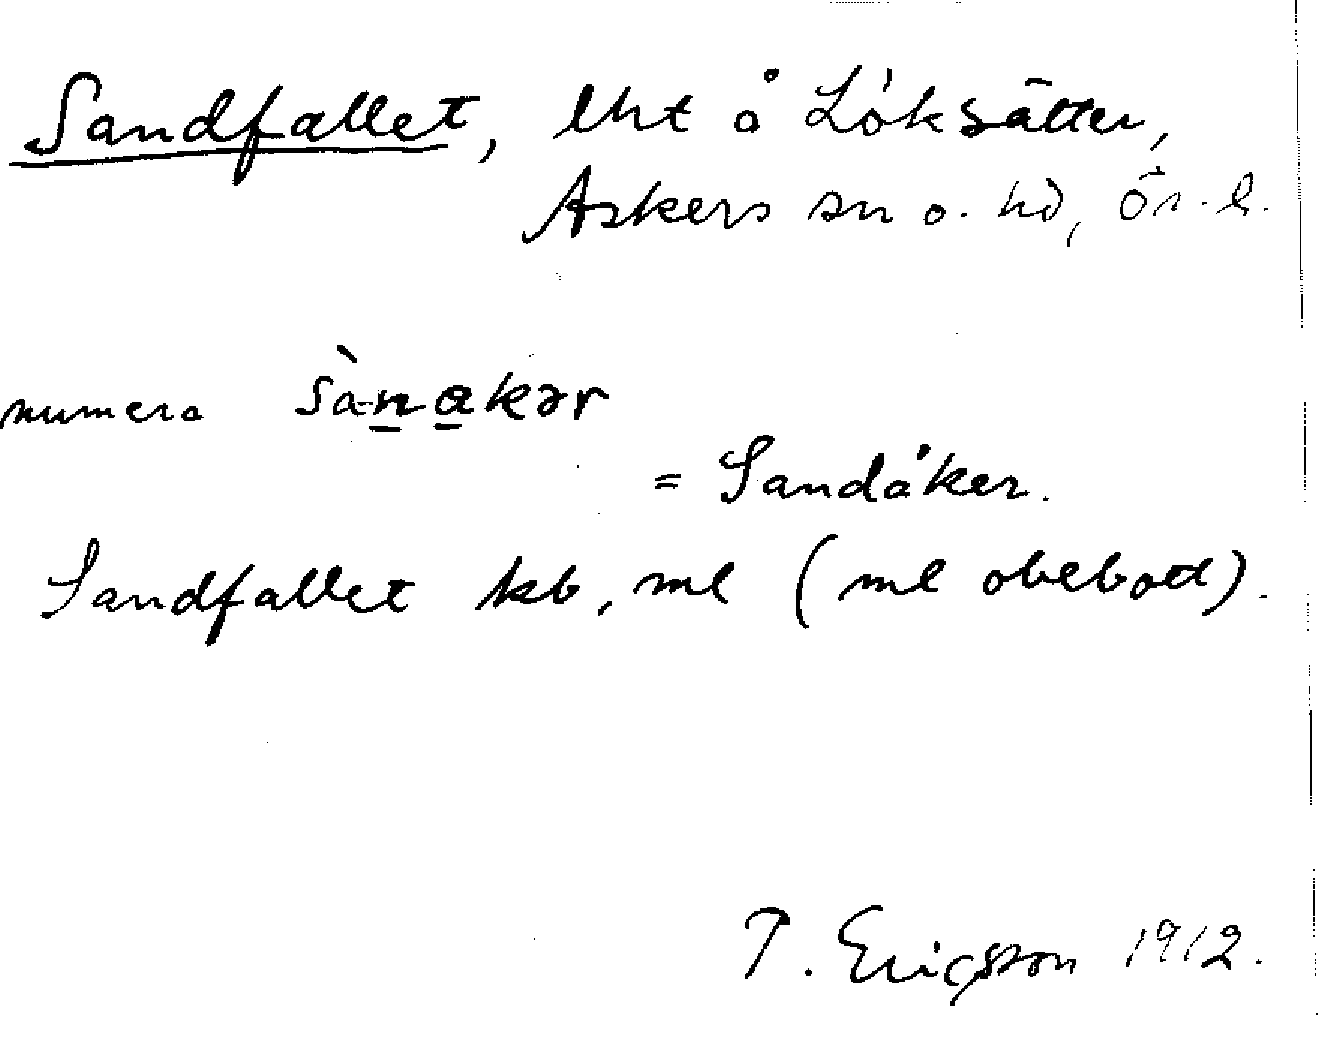 Sandfallet, lht å Löksätter,
Askers sn o. hd, Ör. l.
numera sànakər
= Sandåker.
Sandfallet kb, ml (ml obebott).
T. Ericsson 1912.